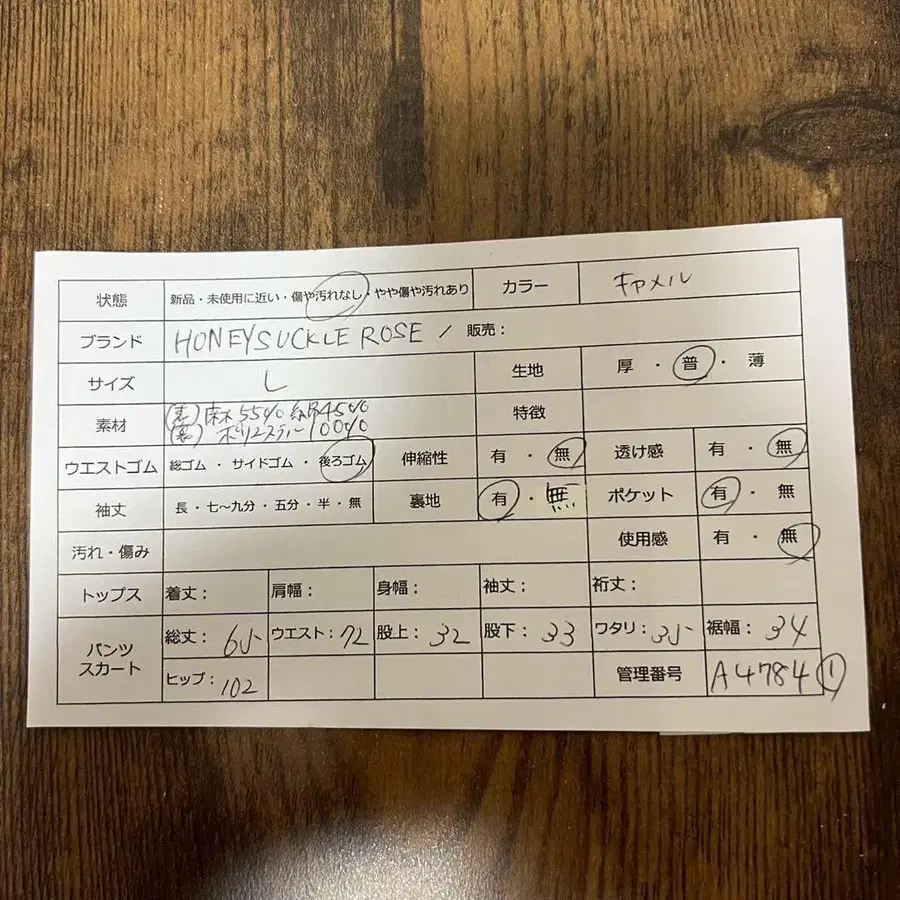 状態 新品・未使用に近い・傷や汚れなし・やや傷や汚れあり カラー キャメル
ブランド HONEYSUCKLE ROSE / 販売：
サイズ L 生地 厚・普・薄
素材 (表) 麻 55% 綿45% 特徴
(裏) ポリエステル 100%
ウエストゴム 総ゴム・サイドゴム・後ろゴム 伸縮性 有・無 透け感 有・無
袖丈 長・七〜九分・五分・半・無 裏地 有・無 ポケット 有・無
汚れ・傷み 使用感 有・無
トップス 着丈： 肩幅： 身幅： 袖丈： 裄丈：
パンツ スカート 総丈： 65 ウエスト： 72 股上： 32 股下： 33 ワタリ： 35 裾幅： 34
ヒップ： 102 管理番号 A4784 ①